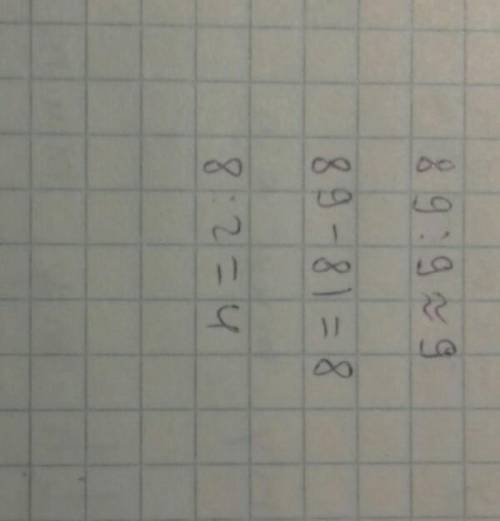 89:9≈9
89-81=8
8:2=4